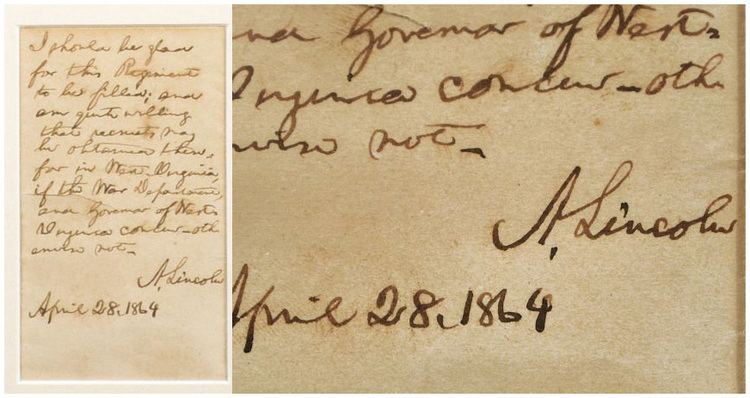 I should be glad
for this Regiment
to be filled; and
am quite willing
that recruits may
be obtained there-
for in West-Virginia,
if the War Department,
and Governor of West-
Virginia concur—oth
erwise not—
A. Lincoln
April 28, 1864
and Governor of West-
Virginia concur—oth
erwise not—
A. Lincoln
April 28, 1864